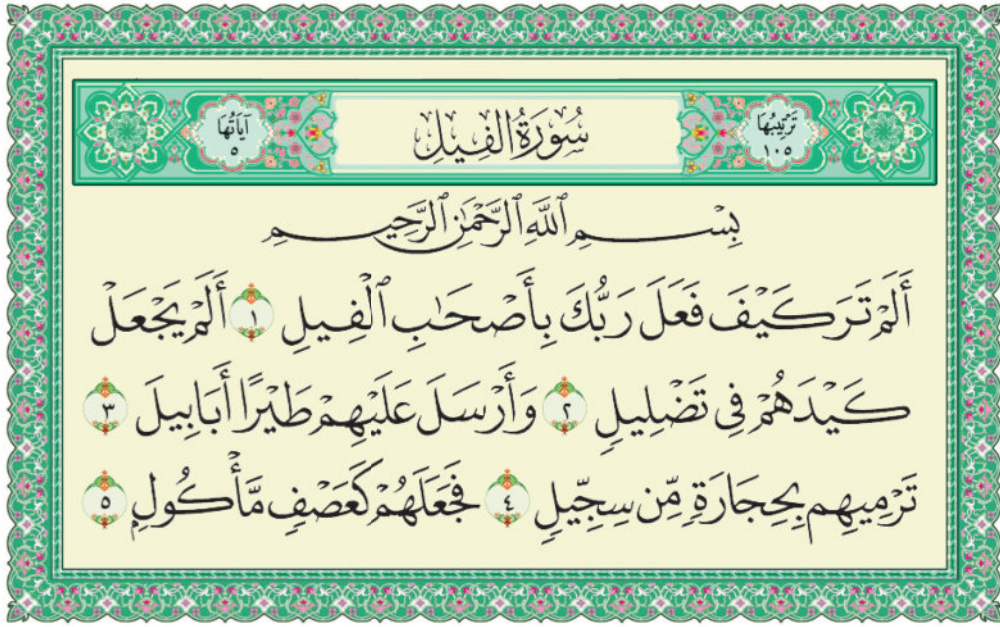 ترتيبها
١٠٥
سُورَةُ الفِيلِ
آيَاتُهَا
٥
بِسْمِ ٱللَّهِ ٱلرَّحْمَٰنِ ٱلرَّحِيمِ
أَلَمْ تَرَ كَيْفَ فَعَلَ رَبُّكَ بِأَصْحَٰبِ ٱلْفِيلِ ١ أَلَمْ يَجْعَلْ
كَيْدَهُمْ فِى تَضْلِيلٍ ٢ وَأَرْسَلَ عَلَيْهِمْ طَيْرًا أَبَابِيلَ ٣
تَرْمِيهِم بِحِجَارَةٍ مِّن سِجِّيلٍ ٤ فَجَعَلَهُمْ كَعَصْفٍ مَّأْكُولٍ ٥